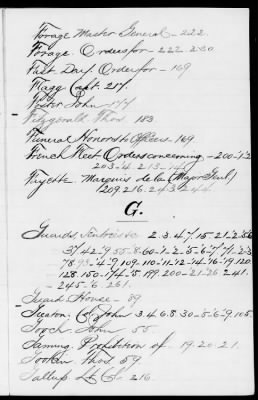 Forage Master General - 222.
Forage. Orders for - 222. 230
Fast Day. Order for - 169
Flagg Capt. 217.
John 177
Fitzgerald Thos. 183.
Funeral Honors to Officers - 169.
French Fleet Orders concerning, - 200-1-2
203-4. 213-14
Fayette. Marquis de la (Major Genl)
209. 216. 243. 244.
G.
Guards 2. 3. 4. 7. 15. 21-2-
37. 42-9. 55-8. 60-1-2-5-6-7. 71-2-3
78. 93-4-9. 109. 110-11-12-14-16-19. 120.
128. 150. 174-5. 199. 200-21-26. 241.
-245-6. 261.
Guard House - 39
Col. John 3. 4. 6. 8. 30-5-6-9. 105.
John 55.
Gaming. Prohibition of - 19. 20. 21.
Thos. 59
Gallup Lt. Col. 216.